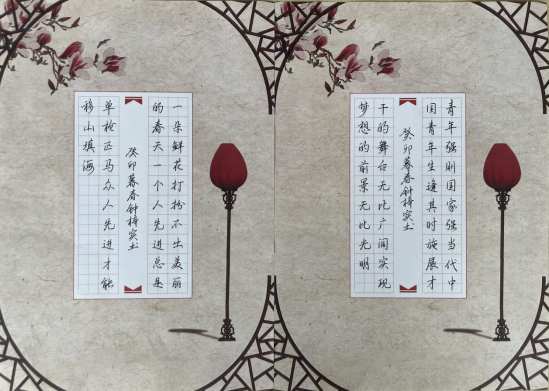 一朵鲜花打扮不出美丽
的春天一个人先进总是
癸卯暮春钟梓实书
单枪匹马众人先进才能
移山填海
青年强则国家强当代中
国青年生逢其时施展才
癸卯暮春钟梓实书
干的舞台无比广阔实现
梦想的前景无比光明